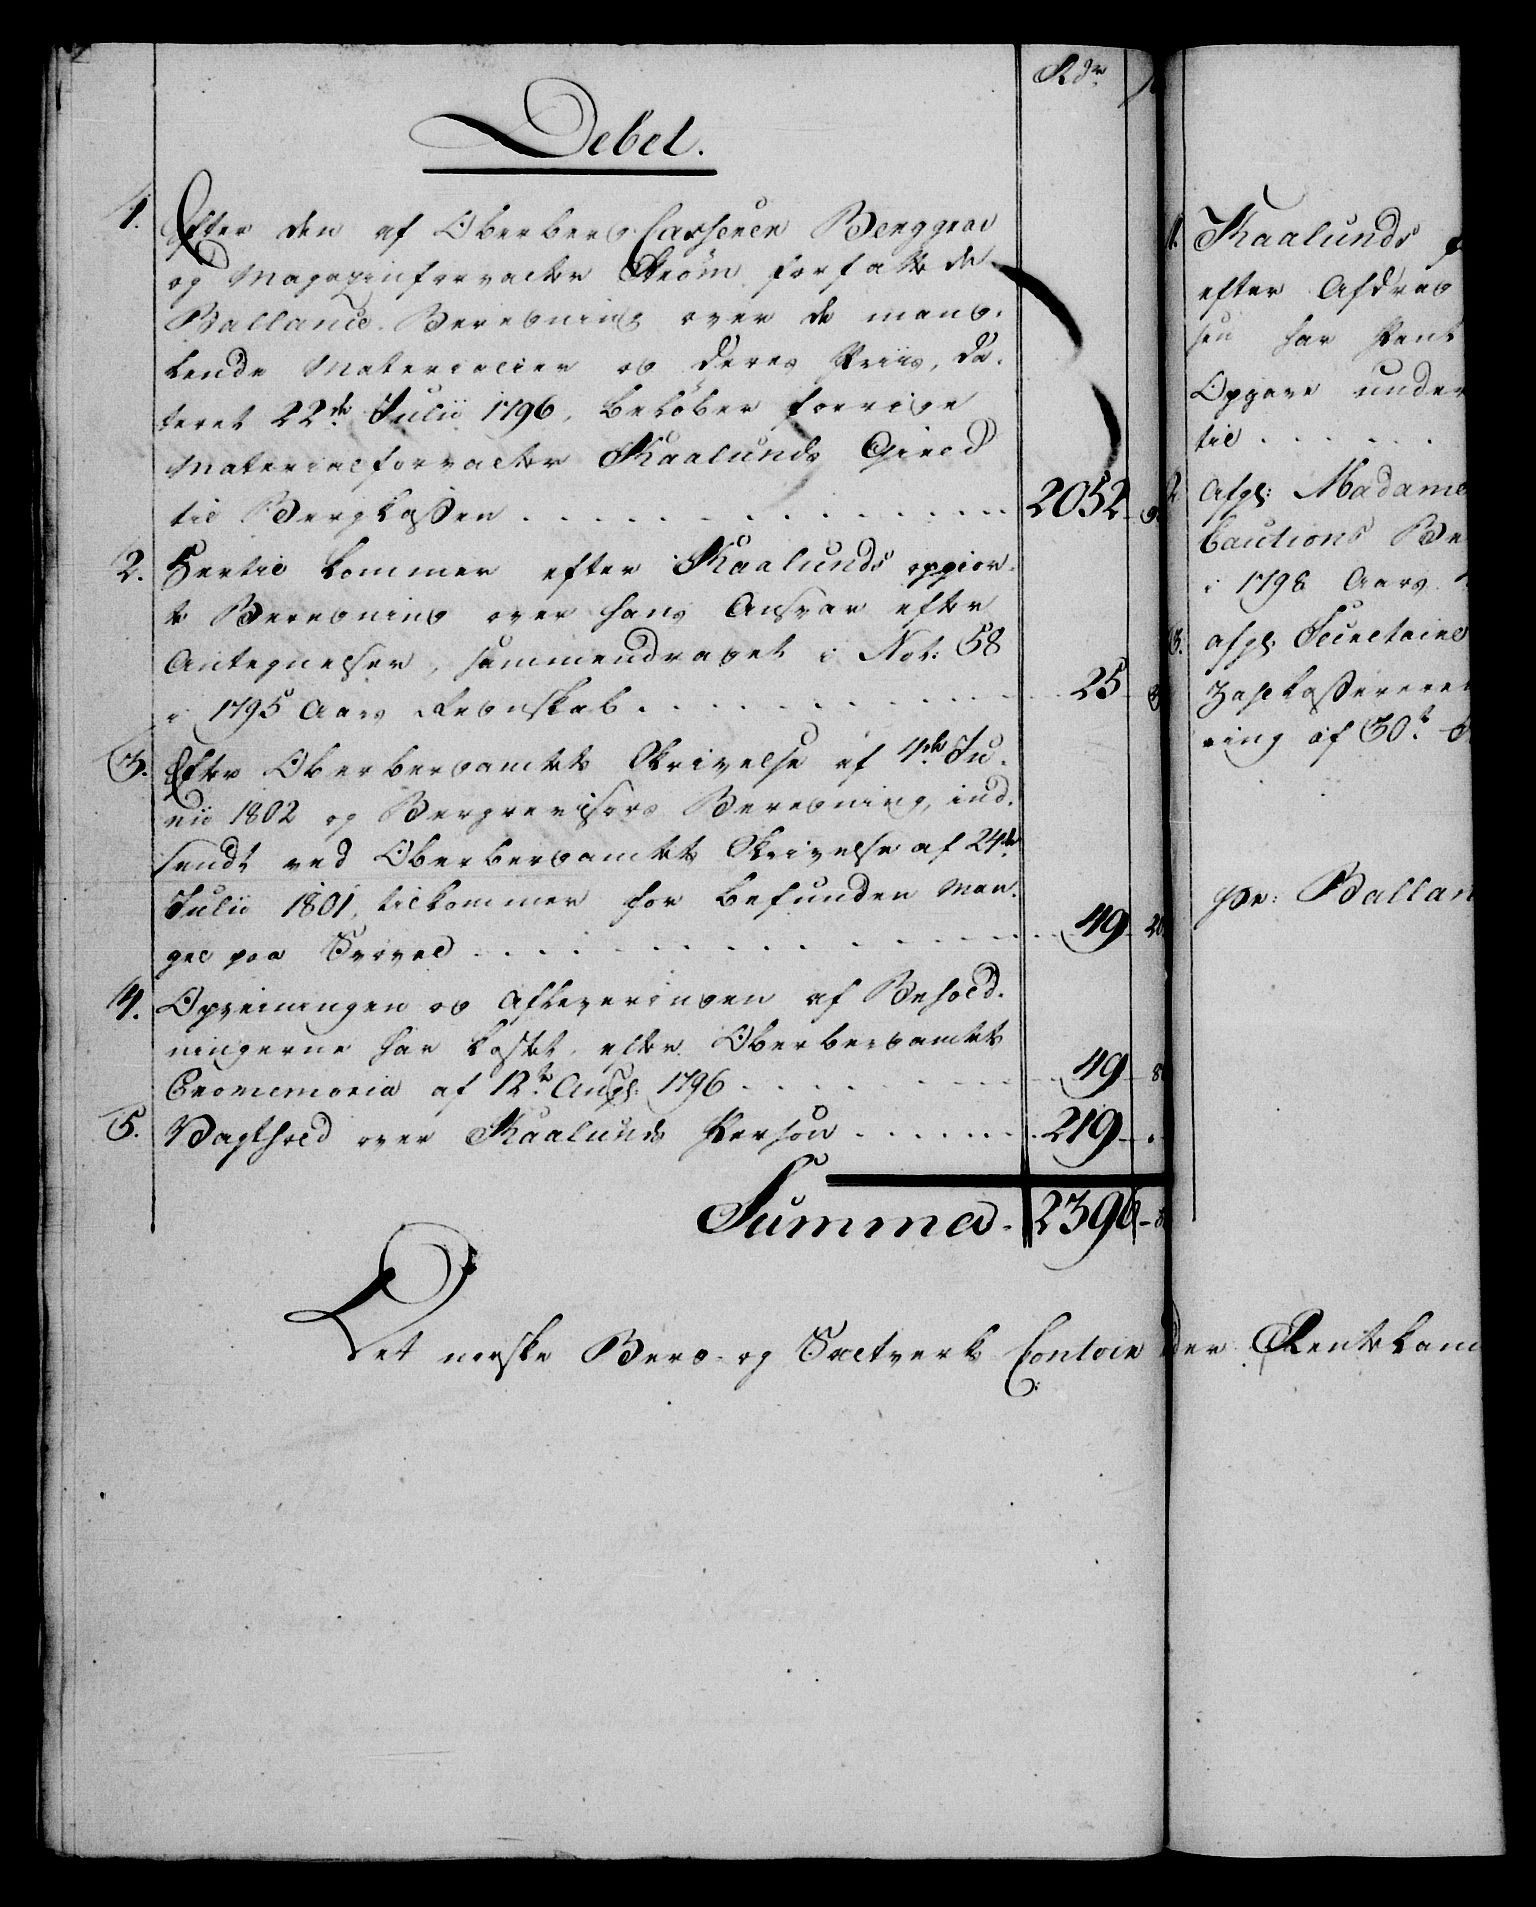 Rdr
Debet.
1. Efter den af Oberberg Casserer Berggrav
og Magazinforvalter Strøm forfattede
Ballance-Beregning over de mang-
lende Materialier og deres Priis, da-
teret 22de Julii 1796, beløber forrige
Materialforvalter Kaalunds Gield
til Bergkassen . . . 2052
2. Hertil kommer efter Kaalunds oppior-
te Beregning over hans Ansvar efter
Antegnelser, sammendraget i Not: 58
i 1795 Aars Regnskab . . . 25
3. Efter Oberbergamtets Skrivelse af 4de Ju-
nii 1802 og Bergrevisors Beregning, ind-
sendt ved Oberbergamtets Skrivelse af 24de
Julii 1801, tilkommer for befunden Man-
gel paa Svovel . . . 49
4. Opveiningen og Afleveringen af Behold-
ningerne har kostet, efter Oberbergamtets
Promemoria af 12te Augs: 1796 . . . 49
5. Vagthold over Kaalunds Person . . . 219
Summa. 2396
Det norske Berg- og Saltverks Contoir
1. Kaalunds
efter Afdrag
sen har
Opgave under
til . . .
2. Afgl: Madame
Cautions Be
i 1798 Aars
3. afgl. Secretaire
Zahlkasserere
ring af 30te
pr: Ballan
der Rentekam